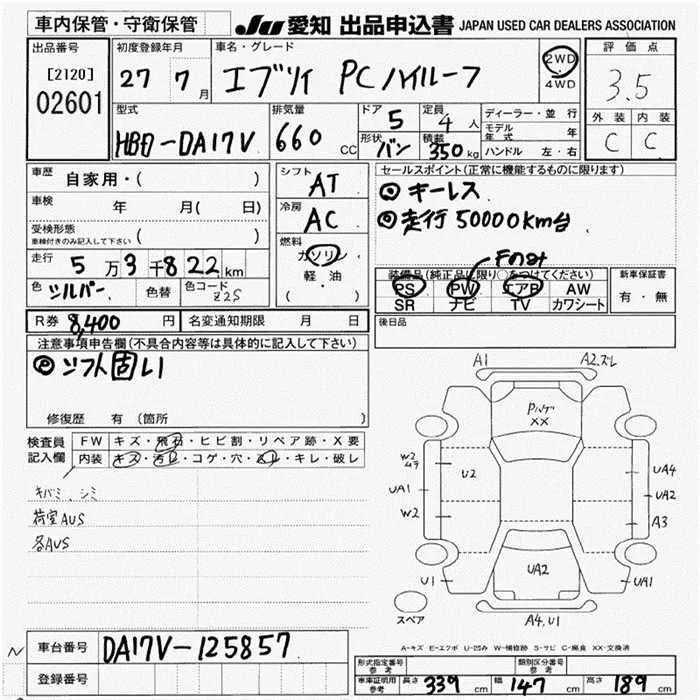 車内保管・守衛保管 JU 愛知 出品申込書 JAPAN USED CAR DEALERS ASSOCIATION
出品番号 初度登録年月 車名・グレード 評価点
[2120] 02601 27 7月 エブリイ PCハイルーフ 2WD 4WD 3.5
型式 排気量 ドア 5 定員 4人 ディーラー・並行 外装 内装
HBD-DA17V 660 CC 形状 バン 積載 350kg モデル年式 年 ハンドル 左・右 C C
車歴 自家用・( ) シフト AT セールスポイント(正常に機能するものに限ります)
車検 年 月( 日) 冷房 AC ◎キーレス
受検形態 車検付きのみ記入して下さい ( ) ◎走行50000km台
走行 5万3千822km 燃料 ガソリン 軽・油 ( ) Fのみ
装備品(純正品に限り○をつけてください) 新車保証書
色 シルバー 色替 色コード Z2S PS PW エアB AW 有・無
SR ナビ TV カワシート
R券 8,400円 名変通知期限 月 日 後日品
注意事項申告欄(不具合内容等は具体的に記入して下さい)
シフト固い
修復歴 有 (箇所 )
検査員記入欄 FW キズ・飛石・ヒビ割・リペア跡・X要
内装 キズ・汚レ・コゲ・穴・スレ・キレ・破レ
キバミ、シミ
荷室AUS
各AUS
A1 A2.ズレ
Pハゲ
XX
W2
ムラ
U2
UA4
UA1
UA2
W2
A3
UA2
U1
UA1
スペア
A4,U1
A-キズ E-エクボ U-凹み W-補修跡 S-サビ C-腐食 XX-交換済
N
車台番号 DA17V-125857
登録番号
形式指定番号 参考 類別区分番号 参考
車庫証明用 参考 長さ 339cm 幅 147cm 高さ 189cm